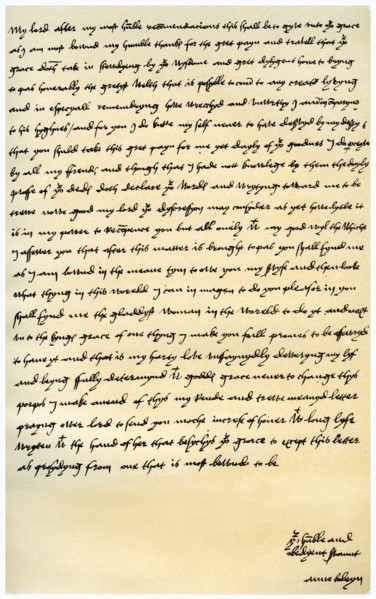 My lord after my most hu̅ble recōmendacions this shall be to gyve unto yor grace
as I am most bownd my humble thanks for the gret payn and travell that yor
grace doth take in steudyeng by yor wysdome and gret dylygens howe to bryng
to pas honerably the gretyst welth that is possible to com to any creatur lyvyng
and in especyall remembryng howe wrecchyd and unwrthy I am in comparyng
to his hyghnes / and for you I do knowe my self never to have deservyd by my desertys
that you shuld take this gret payn for me yet dayly of yor goodnes I do perceyve
by all my frends and though that I hade nott knowlege by them the dayly
proffe of yor deds doth declare yor words and wrytyng toward me to be
trewe nowe good my lord yor dyscressyon may consyder as yet howe lytle it
is in my power to recompence you but all onely wt my good wyl the whiche
I assewer you that after this matter is brought to pas you shall fynd me
as I am bownd in the meane tym to owe you my servyse and then looke
what thyng in this woreld I can in magen to do you pleasor in you
shall fynd me the gladdyst woman in the woreld to do yt and next
unto the kyngs grace of one thyng I make you full promes to be assewryd
to have yt and that is my harty love unfaynydly dewering my lyf
and beyng fully determynd wt godds grace never to change thys
porpos I make anend of thys my reude and trewe meanyd letter
prayng ower lord to send you moche increse of honor wt long lyfe
wrytten wt the hand of her that besychys yor grace to except this letter
as prosydyng from one that is most bownde to be
yor hu̅ble and
obedyent servaunt
anne boleyn